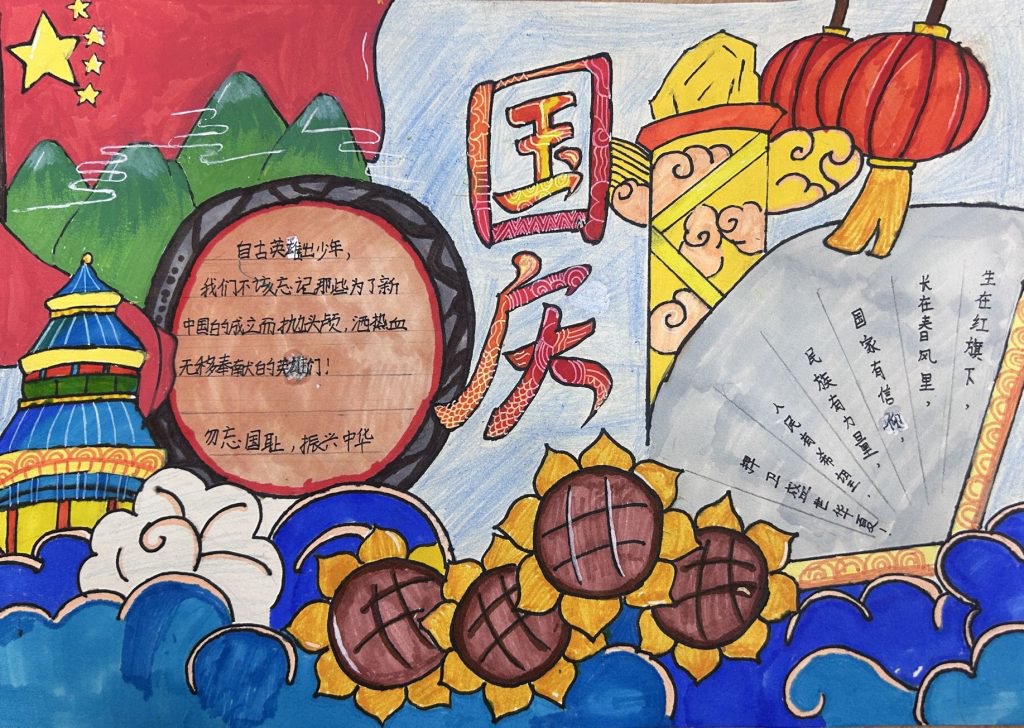 国庆
自古英雄出少年，
我们不该忘记那些为了新
中国的成立而抛头颅，洒热血
无移奉献的英雄们！
勿忘国耻，振兴中华
生在红旗下，
长在春风里，
国家有信仰，
民族有力量，
人民有希望！
捍卫应是华夏！